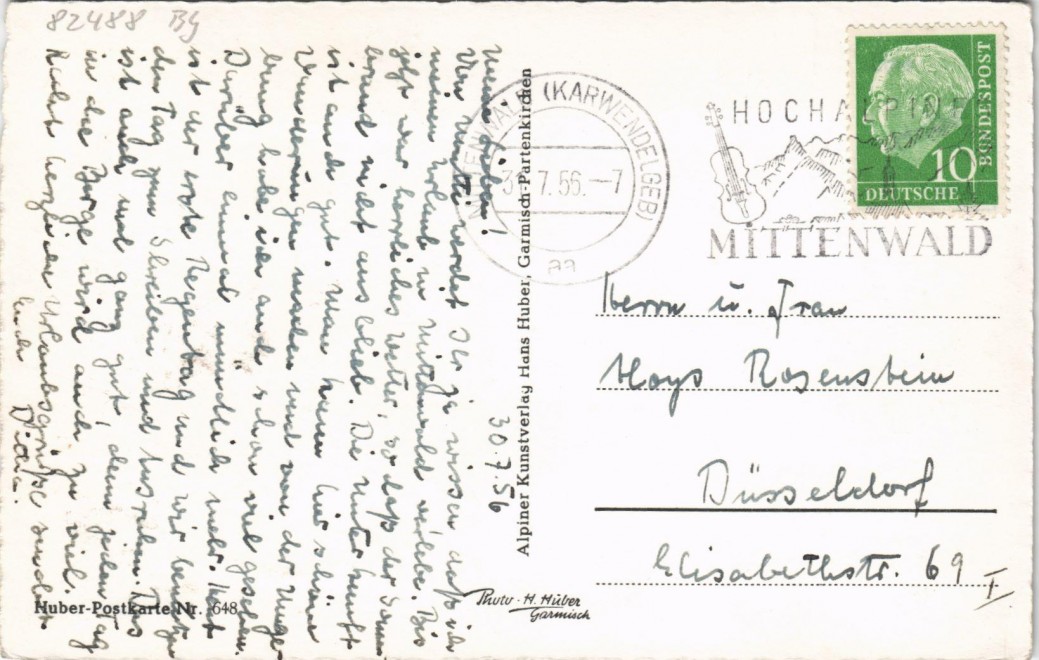 82488 Bg
Meine Lieben!
Von Mutti werdet Ihr ja wissen, daß ich
meinen Urlaub in Mittenwald verlebe. Bis
jetzt war herrliches Wetter, so daß der Sonnen
brand nicht ausblieb. Die Unterkunft
ist auch gut. Man kann hier schöne
Wanderungen machen und von der Umge-
bung habe ich auch schon viel gesehen.
Darüber einmal mündlich mehr. Heut
ist der erste Regentag und wir benutzen
den Tag zum Schreiben und Ausruhn. Das
ist auch mal ganz gut, denn jeden Tag
in die Berge wird auch zu viel.
Recht herzliche Urlaubsgrüße sendet
Euch
30.7.56
Alpiner Kunstverlag Hans Huber, Garmisch-Partenkirchen
MITTENWALD (KARWENDELGEB)
7.56.–7
aa
HOCHALPINE
MITTENWALD
DEUTSCHE
BUNDESPOST
10
Herrn u. Frau
Aloys Rosenstein
Düsseldorf
Elisabethstr. 69 I.
Huber-Postkarte Nr. 648
Photo - H. Huber
Garmisch